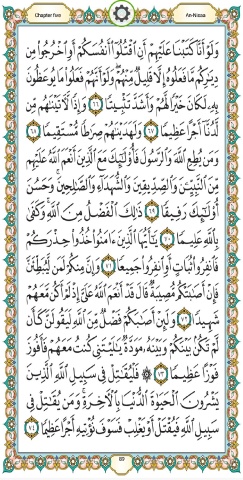 Chapter five An-Nisaa
وَلَوْ أَنَّا كَتَبْنَا عَلَيْهِمْ أَنِ ٱقْتُلُوٓا۟ أَنفُسَكُمْ أَوِ ٱخْرُجُوا۟ مِن
دِيَـٰرِكُم مَّا فَعَلُوهُ إِلَّا قَلِيلٌ مِّنْهُمْ ۖ وَلَوْ أَنَّهُمْ فَعَلُوا۟ مَا يُوعَظُونَ
بِهِۦ لَكَانَ خَيْرًا لَّهُمْ وَأَشَدَّ تَثْبِيتًا ٦٦ وَإِذًا لَّـَٔاتَيْنَـٰهُم مِّن
لَّدُنَّآ أَجْرًا عَظِيمًا ٦٧ وَلَهَدَيْنَـٰهُمْ صِرَٰطًا مُّسْتَقِيمًا ٦٨
وَمَن يُطِعِ ٱللَّهَ وَٱلرَّسُولَ فَأُو۟لَـٰٓئِكَ مَعَ ٱلَّذِينَ أَنْعَمَ ٱللَّهُ عَلَيْهِم
مِّنَ ٱلنَّبِيِّـۧنَ وَٱلصِّدِّيقِينَ وَٱلشُّهَدَآءِ وَٱلصَّـٰلِحِينَ ۚ وَحَسُنَ
أُو۟لَـٰٓئِكَ رَفِيقًا ٦٩ ذَٰلِكَ ٱلْفَضْلُ مِنَ ٱللَّهِ ۚ وَكَفَىٰ
بِٱللَّهِ عَلِيمًا ٧٠ يَـٰٓأَيُّهَا ٱلَّذِينَ ءَامَنُوا۟ خُذُوا۟ حِذْرَكُمْ
فَٱنفِرُوا۟ ثُبَاتٍ أَوِ ٱنفِرُوا۟ جَمِيعًا ٧١ وَإِنَّ مِنكُمْ لَمَن لَّيُبَطِّئَنَّ
فَإِنْ أَصَـٰبَتْكُم مُّصِيبَةٌ قَالَ قَدْ أَنْعَمَ ٱللَّهُ عَلَىَّ إِذْ لَمْ أَكُن مَّعَهُمْ
شَهِيدًا ٧٢ وَلَئِنْ أَصَـٰبَكُمْ فَضْلٌ مِّنَ ٱللَّهِ لَيَقُولَنَّ كَأَن
لَّمْ تَكُنۢ بَيْنَكُمْ وَبَيْنَهُۥ مَوَدَّةٌ يَـٰلَيْتَنِى كُنتُ مَعَهُمْ فَأَفُوزَ
فَوْزًا عَظِيمًا ٧٣ ۞ فَلْيُقَـٰتِلْ فِى سَبِيلِ ٱللَّهِ ٱلَّذِينَ
يَشْرُونَ ٱلْحَيَوٰةَ ٱلدُّنْيَا بِٱلْـَٔاخِرَةِ ۚ وَمَن يُقَـٰتِلْ فِى
سَبِيلِ ٱللَّهِ فَيُقْتَلْ أَوْ يَغْلِبْ فَسَوْفَ نُؤْتِيهِ أَجْرًا عَظِيمًا ٧٤
89